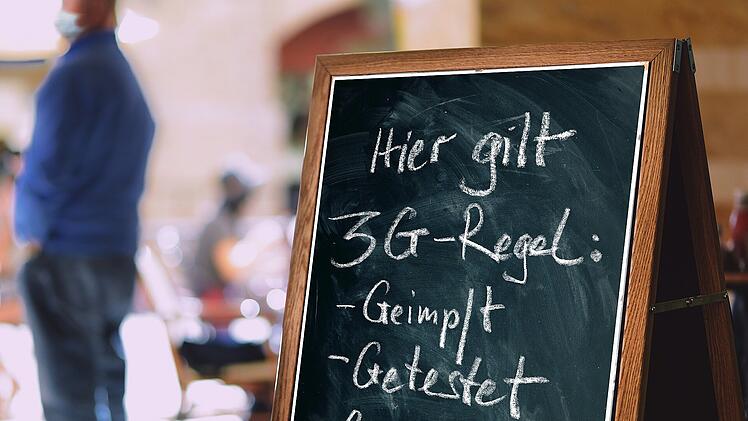 Hier gilt
3G-Regel:
-Geimpft
-Getestet